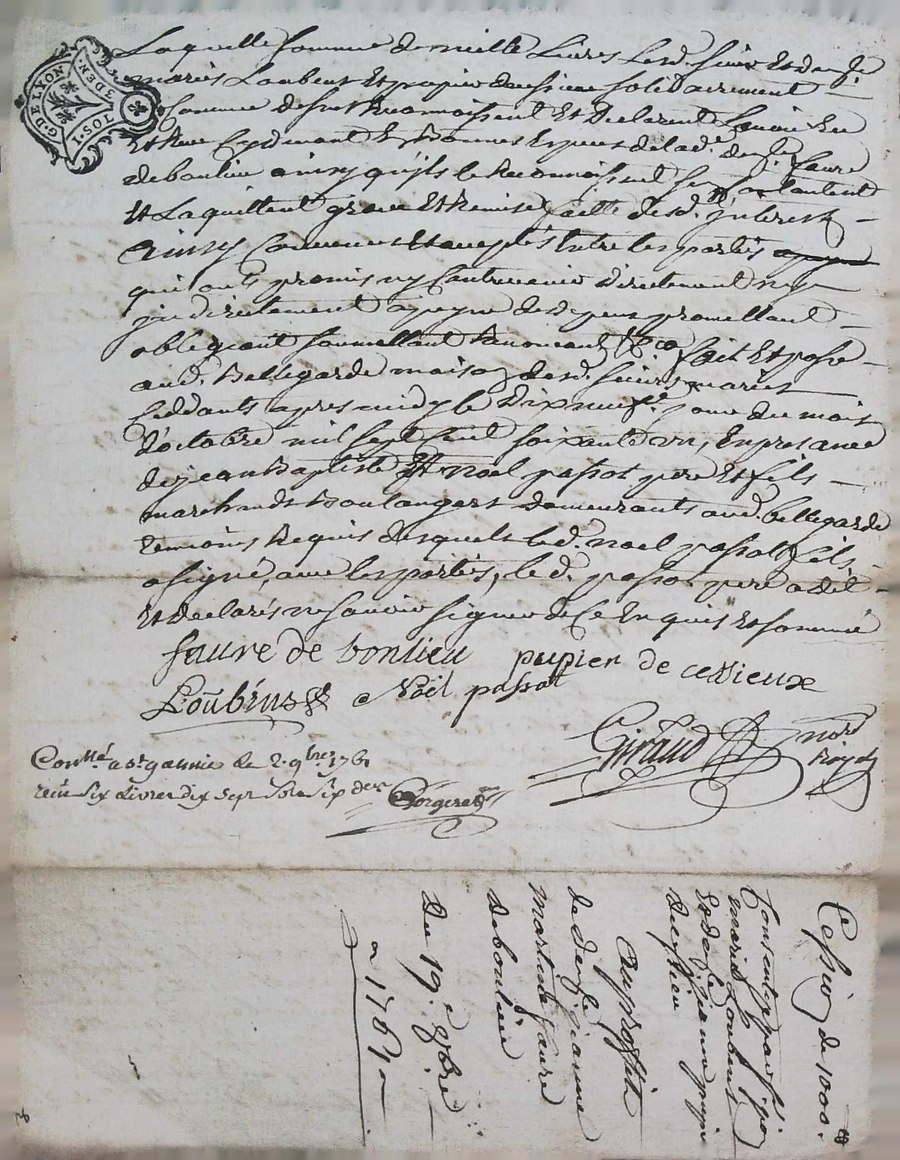 G. DE LYON
1. SOL 3 DEN.
Laquelle somme de mille Livres Lesd. sieur Et dem.lle
mariés Loubens Et pupier de
Comme dessus Reconnoissent Et declarent l'avoir Eu
Et Receu Cy devant En bonnes Especes de lad. dem.lle faure
de bonlieu ainsy qu'ils le Reconnoissent s'en contentent
Et L'aquittent
Ainsy Convenu Et accepté Entre les parties
qui ont promis n'y Contrevenir directement ny
indirectement a peyne de dépens promettant
obligeant soumettant Renonceant &ca fait Et passé
aud. Bellegarde maison desd. sieurs mariés
Ceddants apres midy le Dix neuf.e Jour du mois
d'octobre mil sept cent soixante un, En presance
de jean Baptiste Et noël passot pere Et fils
marchands Boulangers demeurants aud. bellegarde
temoins Requis desquels led. noël passot fils
a signé, avec les parties, led. passot pere a dit
Et declaré ne sçavoir signer de Ce Enquis Et sommé
faure de bonlieu pupier de cessieux
Loubens Noël passot
Giraud nore
Royal
Conllé a st galmier le 2. 9bre 1761
reçu six Livres dix sept sols six ders
Cession de 1000.#
mariés Loubens
Au proffit
de dem.lle jeanne
martine faure
de bonlieu
Du 19.e 8bre
1761